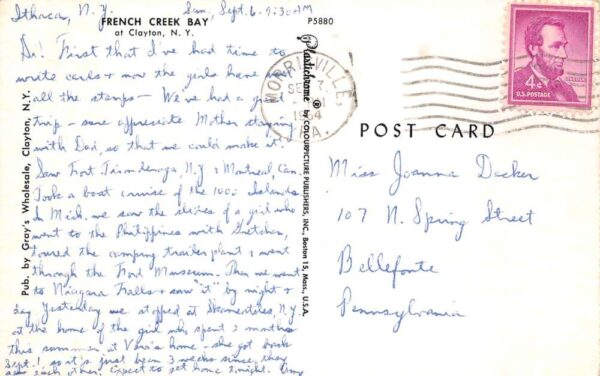 Ithaca, N.Y. Sun, Sept. 6-9:30 PM
FRENCH CREEK BAY
at Clayton, N. Y.
P5880
Hi! First that I've had time to
write cards & now the girls have
all the stamps - We've had a
trip - sure appreciate Mother staying
with Dad, so that we could make it.
Saw Fort Ticonderoga, N.Y. & Montreal, Can.
Took a boat cruise of the 1000 Islands
In Mich. we saw the slides of a girl who
went to the Philippines with Gretchen,
toured the camping trailer plant & went
through the Ford Museum. Then we went
to Niagara Falls & saw "it" by night &
day Yesterday we stopped at Skaneateles, N.Y.
at the home of the girl who spent 2 months
this summer at Vera's home - she got back
Sept. 1, so it's just been 3 weeks since they
saw each other. Expect to get home tonight. Amy
Pub. by Gray's Wholesale, Clayton, N.Y.
Plastichrome ® by COLOURPICTURE PUBLISHERS, INC., Boston 15, Mass., U.S.A.
MORRISVILLE
SEP
1964
PA.
LINCOLN
4¢
U.S. POSTAGE
POST CARD
Miss Joanna Decker
107 N. Spring Street
Bellefonte
Pennsylvania